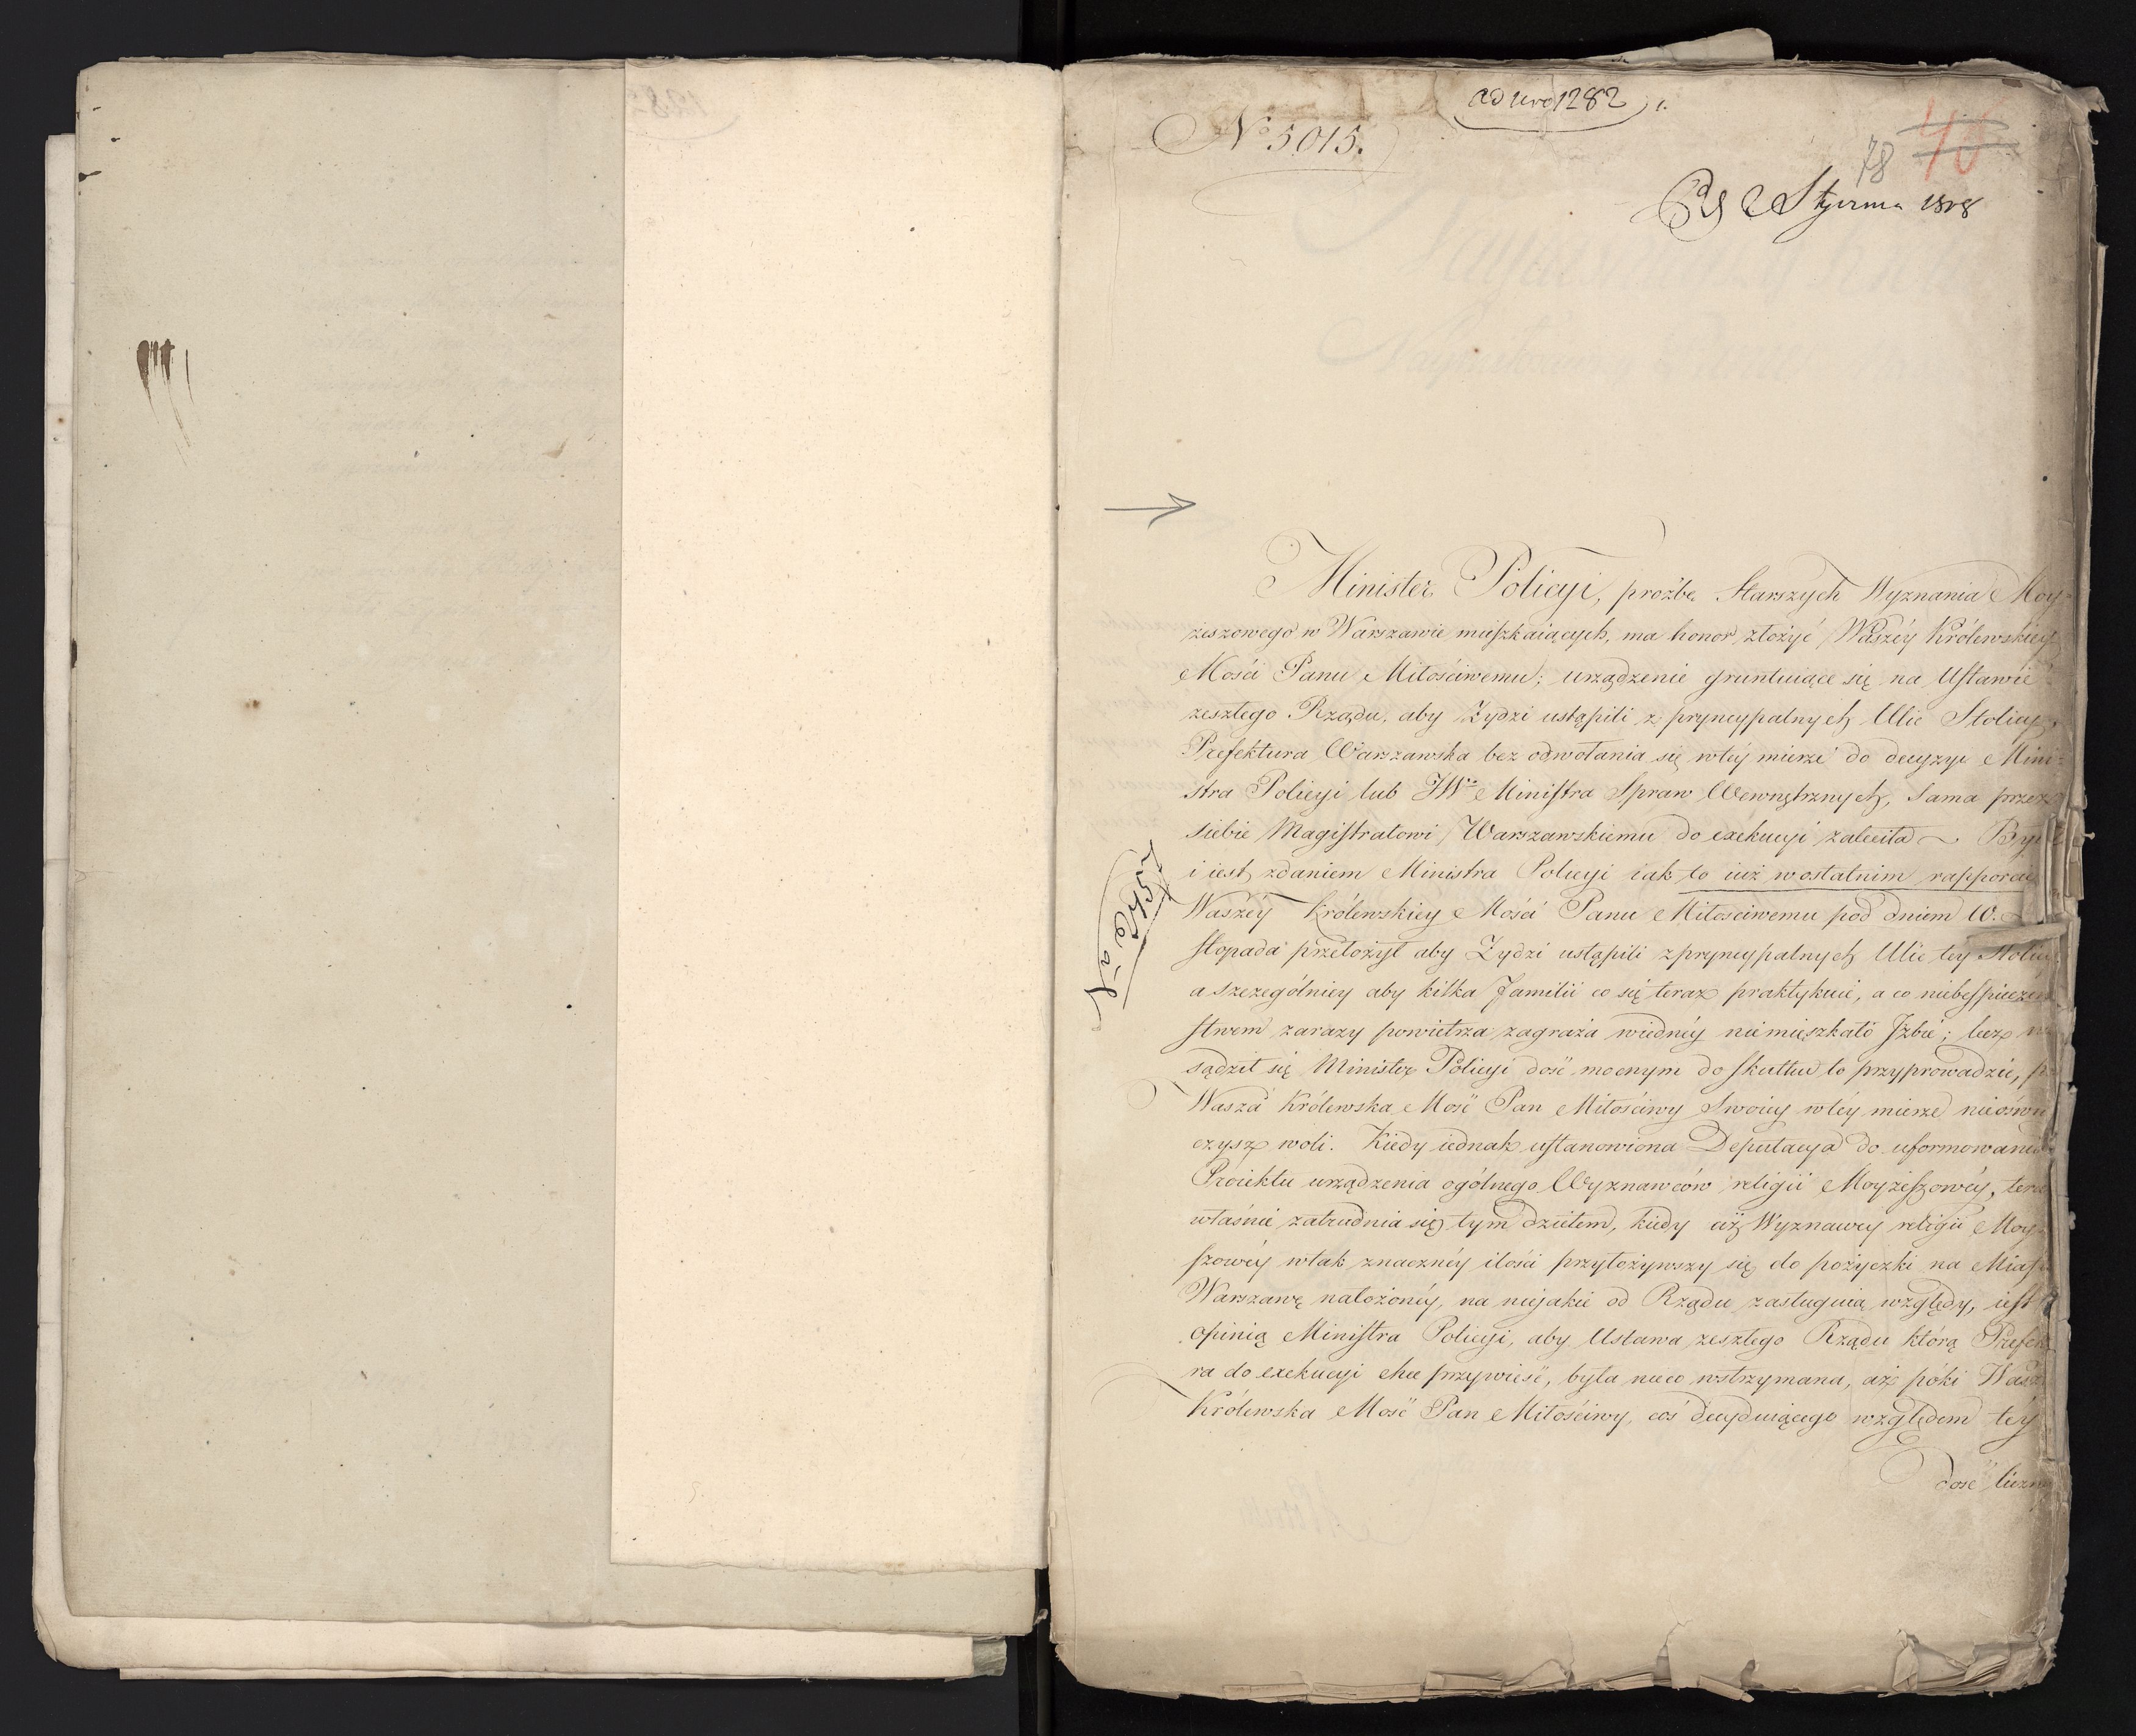 ad Nro 1282
No 5015.
78 46
2 Stycznia 1808
Minister Policyi, prożbę Starszych Wyznania Moy-
żeszowego w Warszawie mieszkaiących, ma honor złożyć Waszéy Królewskiey
Mości Panu Miłościwemu; urządzenie gruntuiące się na Ustawie
zeszłego Rządu, aby Żydzi ustąpili z pryncypalnych Ulic Stolicy,
Prefektura Warszawska bez odwołania się w téy mierze do decyzyi Mini-
stra Policyi lub JWo Ministra Spraw Wewnętrznych, sama przez
siebie Magistratowi Warszawskiemu do exekucyi zaleciła
i iest zdaniem Ministra Policyi iak to iuż w ostatnim rapporcie
Waszéy Królewskiey Mości Panu Miłościwemu pod dniem 10.
stopada przełożył aby Żydzi ustąpili z pryncypalnych Ulic tey Stolicy
a szczególniey aby kilka Familii co się teraz praktykuie, a co niebespieczeń
stwem zarazy powietrza zagraża w iednéy nie mieszkało Izbie; lecz nie
sądził się Minister Policyi dość mocnym do skutku to przyprowadzić,
Wasza Królewska Mość Pan Miłościwy Swoiey w téy mierze nieoświa
czysz woli. Kiedy iednak ustanowiona Deputacya do uformowania
Proiektu urządzenia ogólnego Wyznawców religii Moyżeszowéy, teraz
właśnie zatrudnia się tym dziełem, kiedy ciż Wyznawcy religii Moy-
szowéy w tak znacznéy ilości przyłożywszy się do pożyczki na Miasto
Warszawę nałożonéy, na niejakie od Rządu zasługuią względy, iest
opinią Ministra Policyi, aby Ustawa zeszłego Rządu którą Prefektu
ra do exekucyi chce przywieść, była nieco wstrzymana, aż póki Wasza
Królewska Mość Pan Miłościwy, coś decyduiącego względem téy
dość liczn